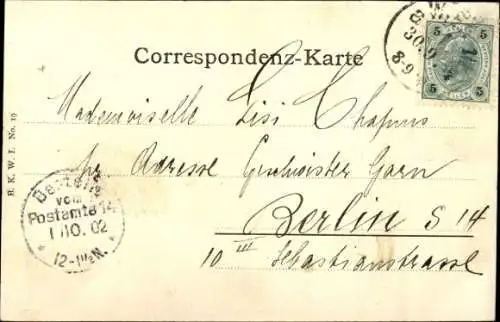 Correspondenz-Karte
5 5
30.9.
8-9
5 5
Mademoiselle Lisi Chapuis
pr Adresse Geschwister Garn
Berlin S 14
III
10 Sebastianstrasse
B. K. W. I. No. 19
Bestellt
vom
Postamte 14
1/10. 02
12-1½N.